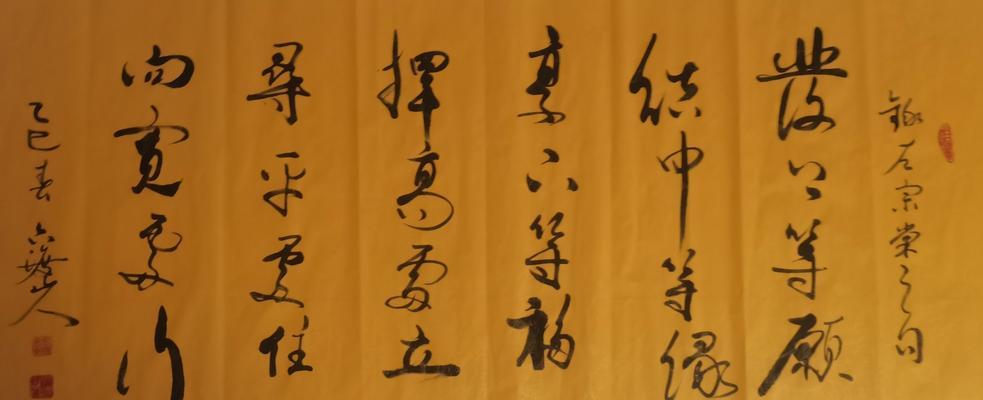 錄左宗棠之句
發上等願
結中等緣
享下等福
擇高處立
尋平處住
向寬處行
乙巳春六山人